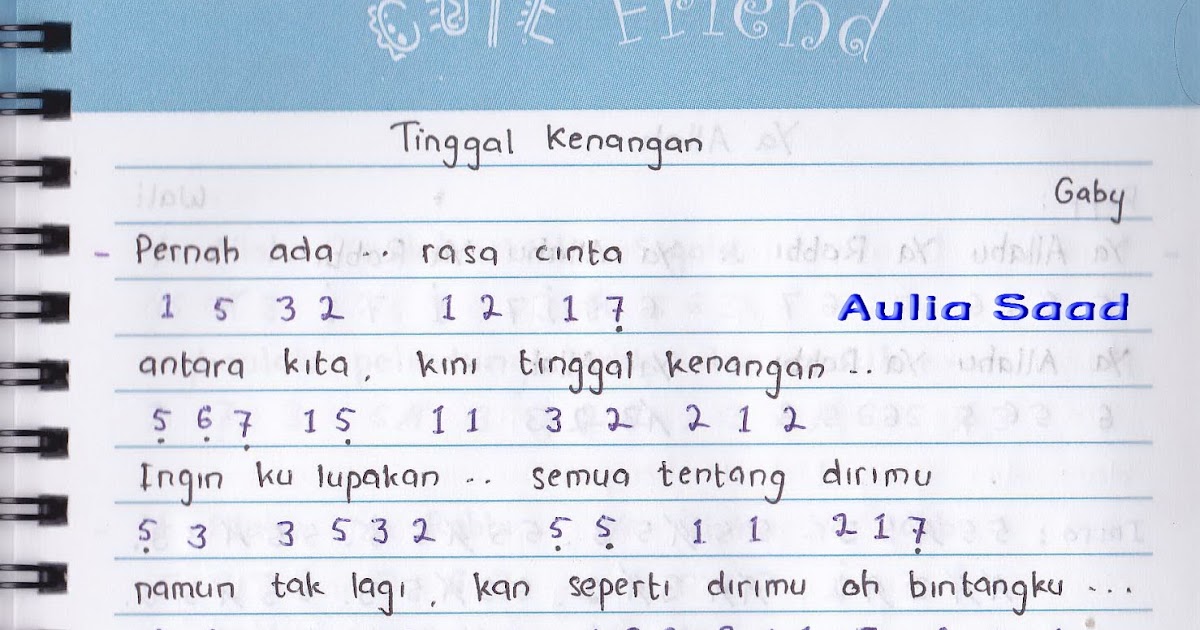 Cute Friend
Tinggal Kenangan
Gaby
- Pernah ada ... rasa cinta
1 5 3 2 1 2 1 7̣
Aulia Saad
antara kita, kini tinggal kenangan ...
5̣ 6̣ 7̣ 1 5̣ 1 1 3 2 2 1 2
Ingin ku lupakan ... semua tentang dirimu
5̣ 3 3 5 3 2 5̣ 5̣ 1 1 2 1 7̣
namun tak lagi, kan seperti dirimu oh bintangku ...